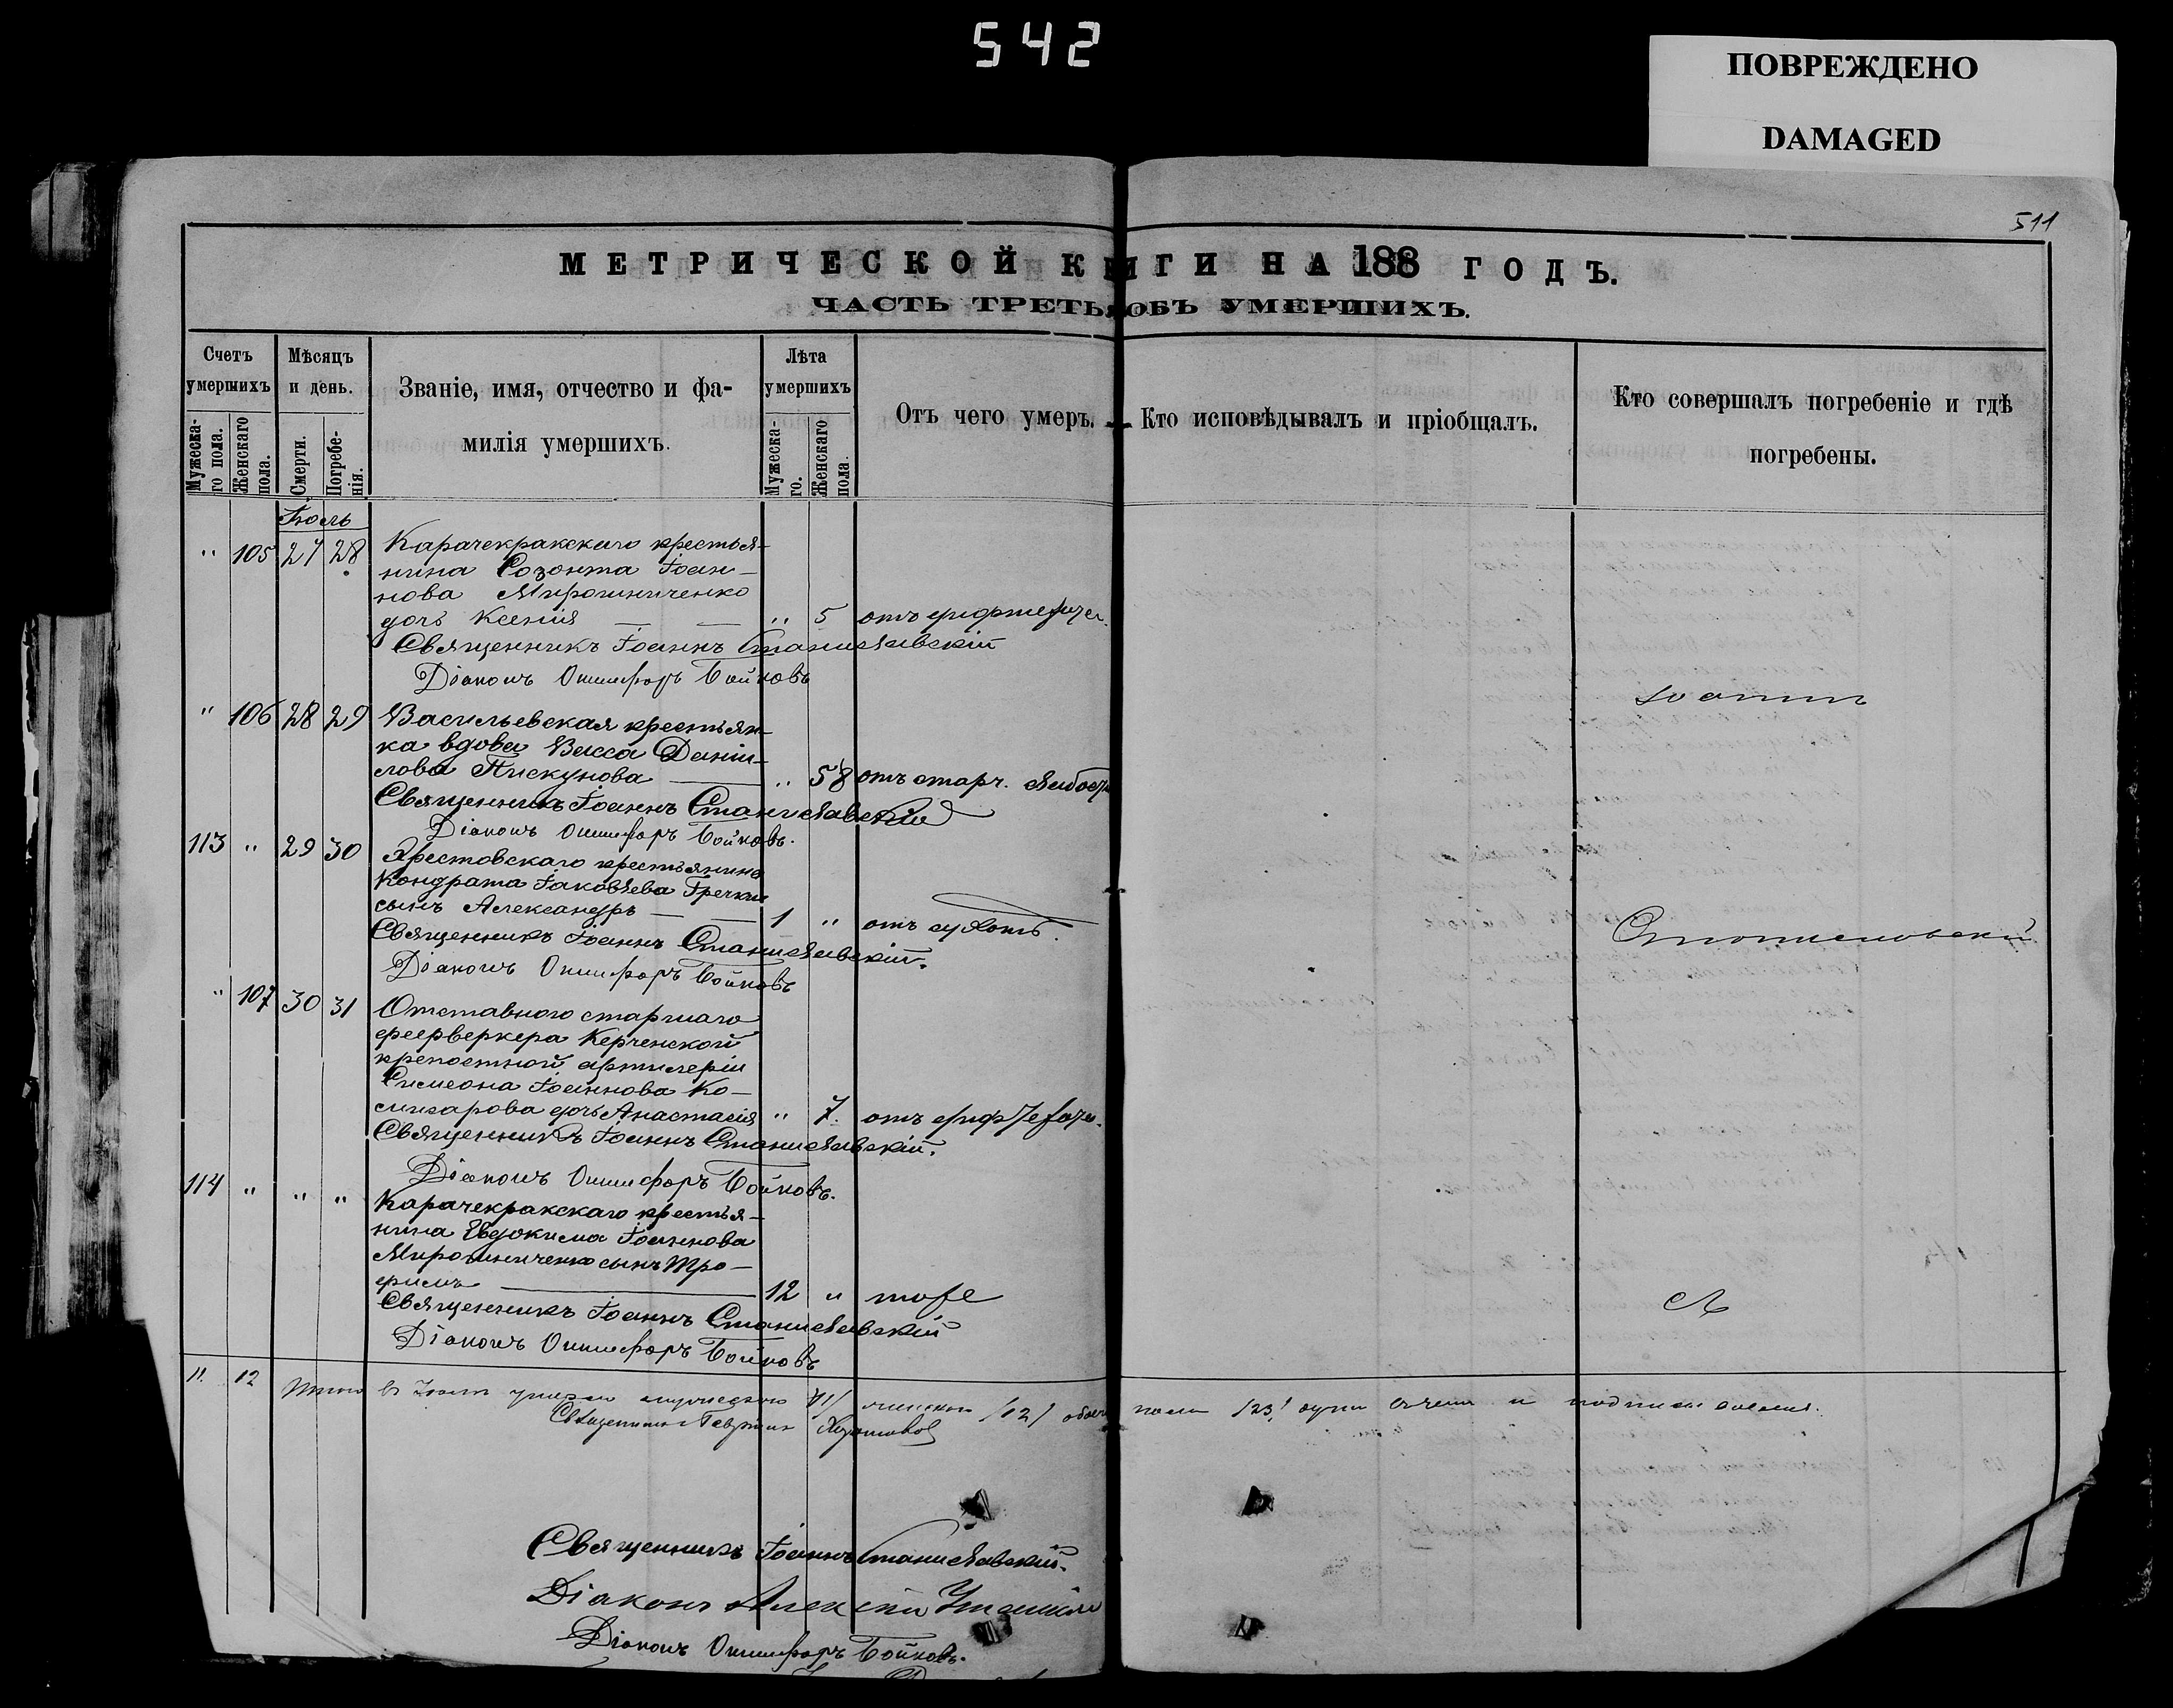 542
ПОВРЕЖДЕНО
DAMAGED
511
МЕТРИЧЕСКОЙ КНИГИ НА 188 ГОДЪ.
ЧАСТЬ ТРЕТЬЯ ОБЪ УМЕРШИХЪ.
Счетъ умершихъ
Мужеска-го пола.
Женскаго пола.
Мѣсяцъ и день.
Смерти.
Погребе-нія.
Званіе, имя, отчество и фа-
милія умершихъ.
Лѣта умершихъ
Мужеска-го.
Женскаго пола.
Отъ чего умеръ.
Кто исповѣдывалъ и пріобщалъ.
Кто совершалъ погребеніе и гдѣ
погребены.
Іюль
" 105 27 28 Карачекракскаго крестья-
нина Созонта Іоан-
нова Мирошниченко
дочь Ксенія — — " 5 отъ
Священникъ Іоаннъ Станиславскій
Діаконъ Онисифоръ Бойковъ
Іоаннъ
" 106 28 29 Васильевская крестьян-
ка вдова Васса Даніи-
лова Пискунова — " 58 отъ старч.
Священникъ Іоаннъ Станиславскій
Діаконъ Онисифоръ Бойковъ.
113 " 29 30 Крестовскаго крестьянина
Кондрата Іаковлева
сынъ Александръ — — 1 " отъ сухотъ.
Священникъ Іоаннъ Станиславскій.
Діаконъ Онисифоръ Бойковъ
Станиславскій
" 107 30 31 Отставного старшаго
феерверкера Керченской
крепостной артилеріи
Симеона Іоаннова Ко-
мисарова дочь Анастасія " 7. отъ
Священникъ Іоаннъ Станиславскій.
Діаконъ Онисифоръ Бойковъ.
114 " " " Карачекракскаго крестья-
нина Евдокима Іоаннова
Мирошниченко сынъ Тро-
фимъ — 12 " тоже
Священникъ Іоаннъ Станиславскій
Діаконъ Онисифоръ Бойковъ
11. 12 Итого въ умерло мужескаго /11/ женскаго /12/ обоего пола /23/
Священникъ
Священникъ Іоаннъ Станиславскій.
Діаконъ Алексій
Діаконъ Онисифоръ Бойковъ.